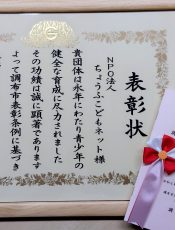 表彰状
NPO法人
ちょうふこどもネット様
貴団体は永年にわたり青少年の
健全な育成に尽力されました
その功績は誠に顕著であります
よって調布市表彰条例に基づき